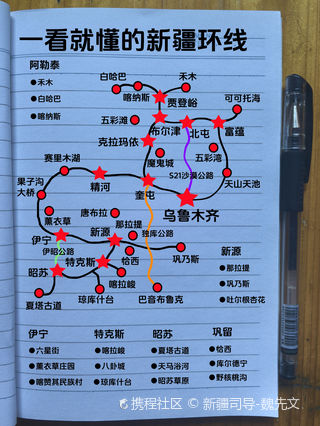 一看就懂的新疆环线
阿勒泰
●禾木
●白哈巴
●喀纳斯
白哈巴
禾木
喀纳斯
贾登峪
可可托海
五彩滩
布尔津
北屯
富蕴
克拉玛依
魔鬼城
五彩湾
赛里木湖
S21沙漠公路
天山天池
果子沟
大桥
精河
奎屯
乌鲁木齐
薰衣草
唐布拉
那拉提
伊宁
新源
独库公路
伊昭公路
特克斯
恰西
巩乃斯
昭苏
喀拉峻
夏塔古道
琼库什台
巴音布鲁克
新源
●那拉提
●巩乃斯
●吐尔根杏花
伊宁 特克斯 昭苏 巩留
●六星街 ●喀拉峻 ●夏塔古道 ●恰西
●薰衣草庄园 ●八卦城 ●天马浴河 ●库尔德宁
●喀赞其民族村 ●琼库什台 ●昭苏草原 ●野核桃沟
携程社区 © 新疆司导-魏先文